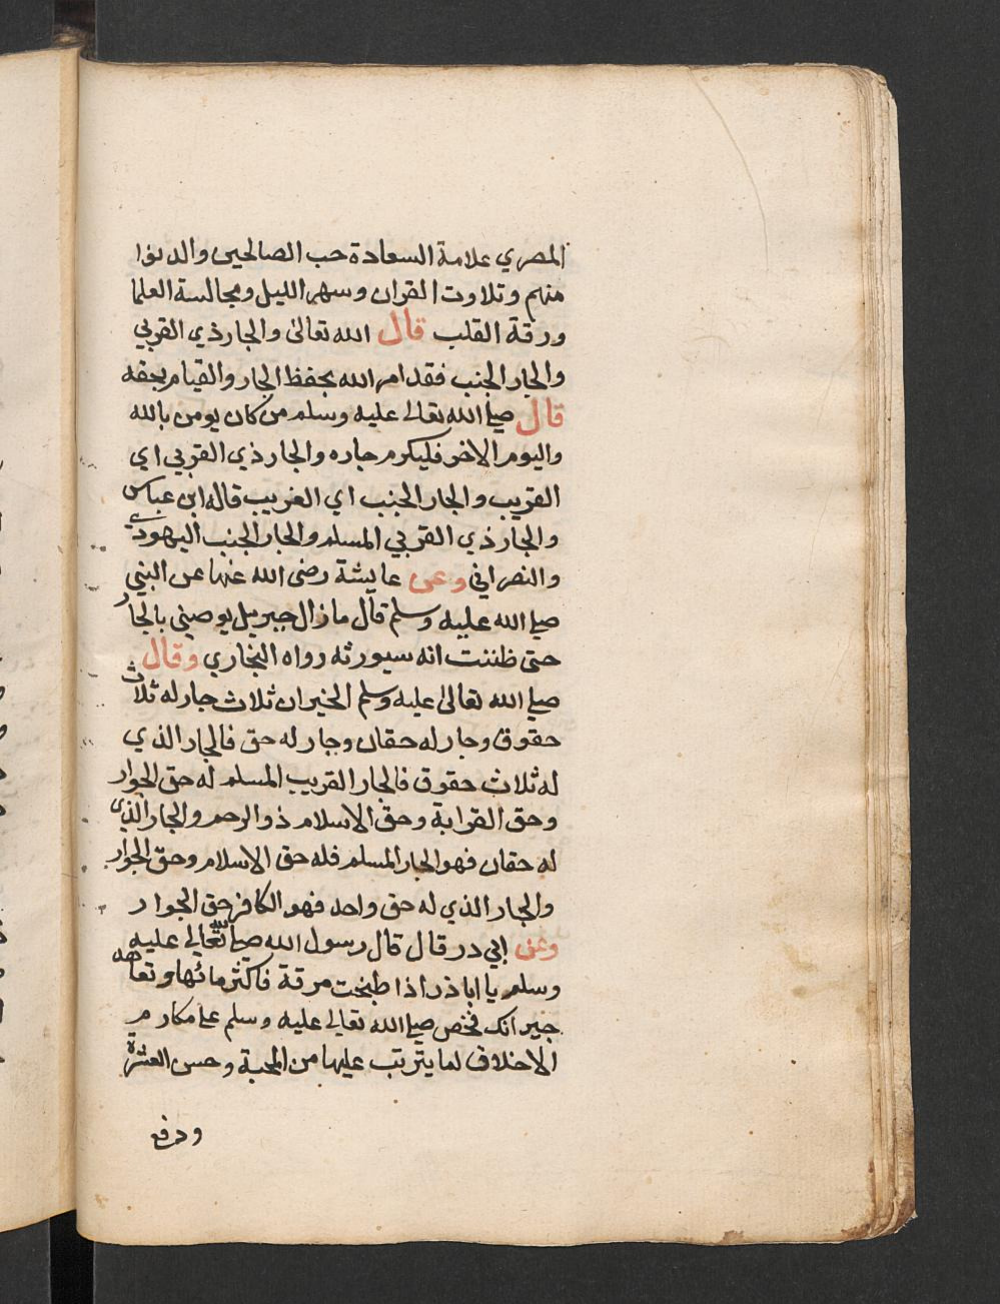 المصري علامة السعادة حب الصالحين والدنوا
منهم وتلاوت القران وسهر الليل ومجالسة العلما
ورقة القلب قال الله تعالى والجار ذي القربي
والجار الجنب فقد امر الله بحفظ الجار والقيام بحقه
قال صلي الله تعالى عليه وسلم من كان يومن بالله
واليوم الاخر فليكرم جاره والجار ذي القربي اي
القريب والجار الجنب اي الغريب قاله ابن عباس
والجار ذي القربي المسلم والجار الجنب اليهودي
والنصراني وعن عايشة رضى الله عنها عن النبي
صلي الله عليه وسلم قال مازال جبريل يوصيني بالجار
حتى ظننت انه سيورثه رواه البخاري وقال
صلي الله تعالى عليه وسلم الجيران ثلاث جار له ثلاث
حقوق وجار له حقان وجار له حق فالجار الذي
له ثلاث حقوق فالجار القريب المسلم له حق الجوار
وحق القرابة وحق الاسلام ذو الرحم والجار الذي
له حقان فهو الجار المسلم فله حق الاسلام وحق الجوار
والجار الذي له حق واحد فهو الكافر حق الجوار
وعن ابي در قال قال رسول الله صلي الله تعالي عليه
وسلم يا اباذر اذا طبخت مرقة فاكثر مائها وتعاهد
جيرانك فخص صلي الله تعالى عليه وسلم علي مكارم
الاخلاق لما يترتب عليها من المحبة وحسن العشرة
ودفع